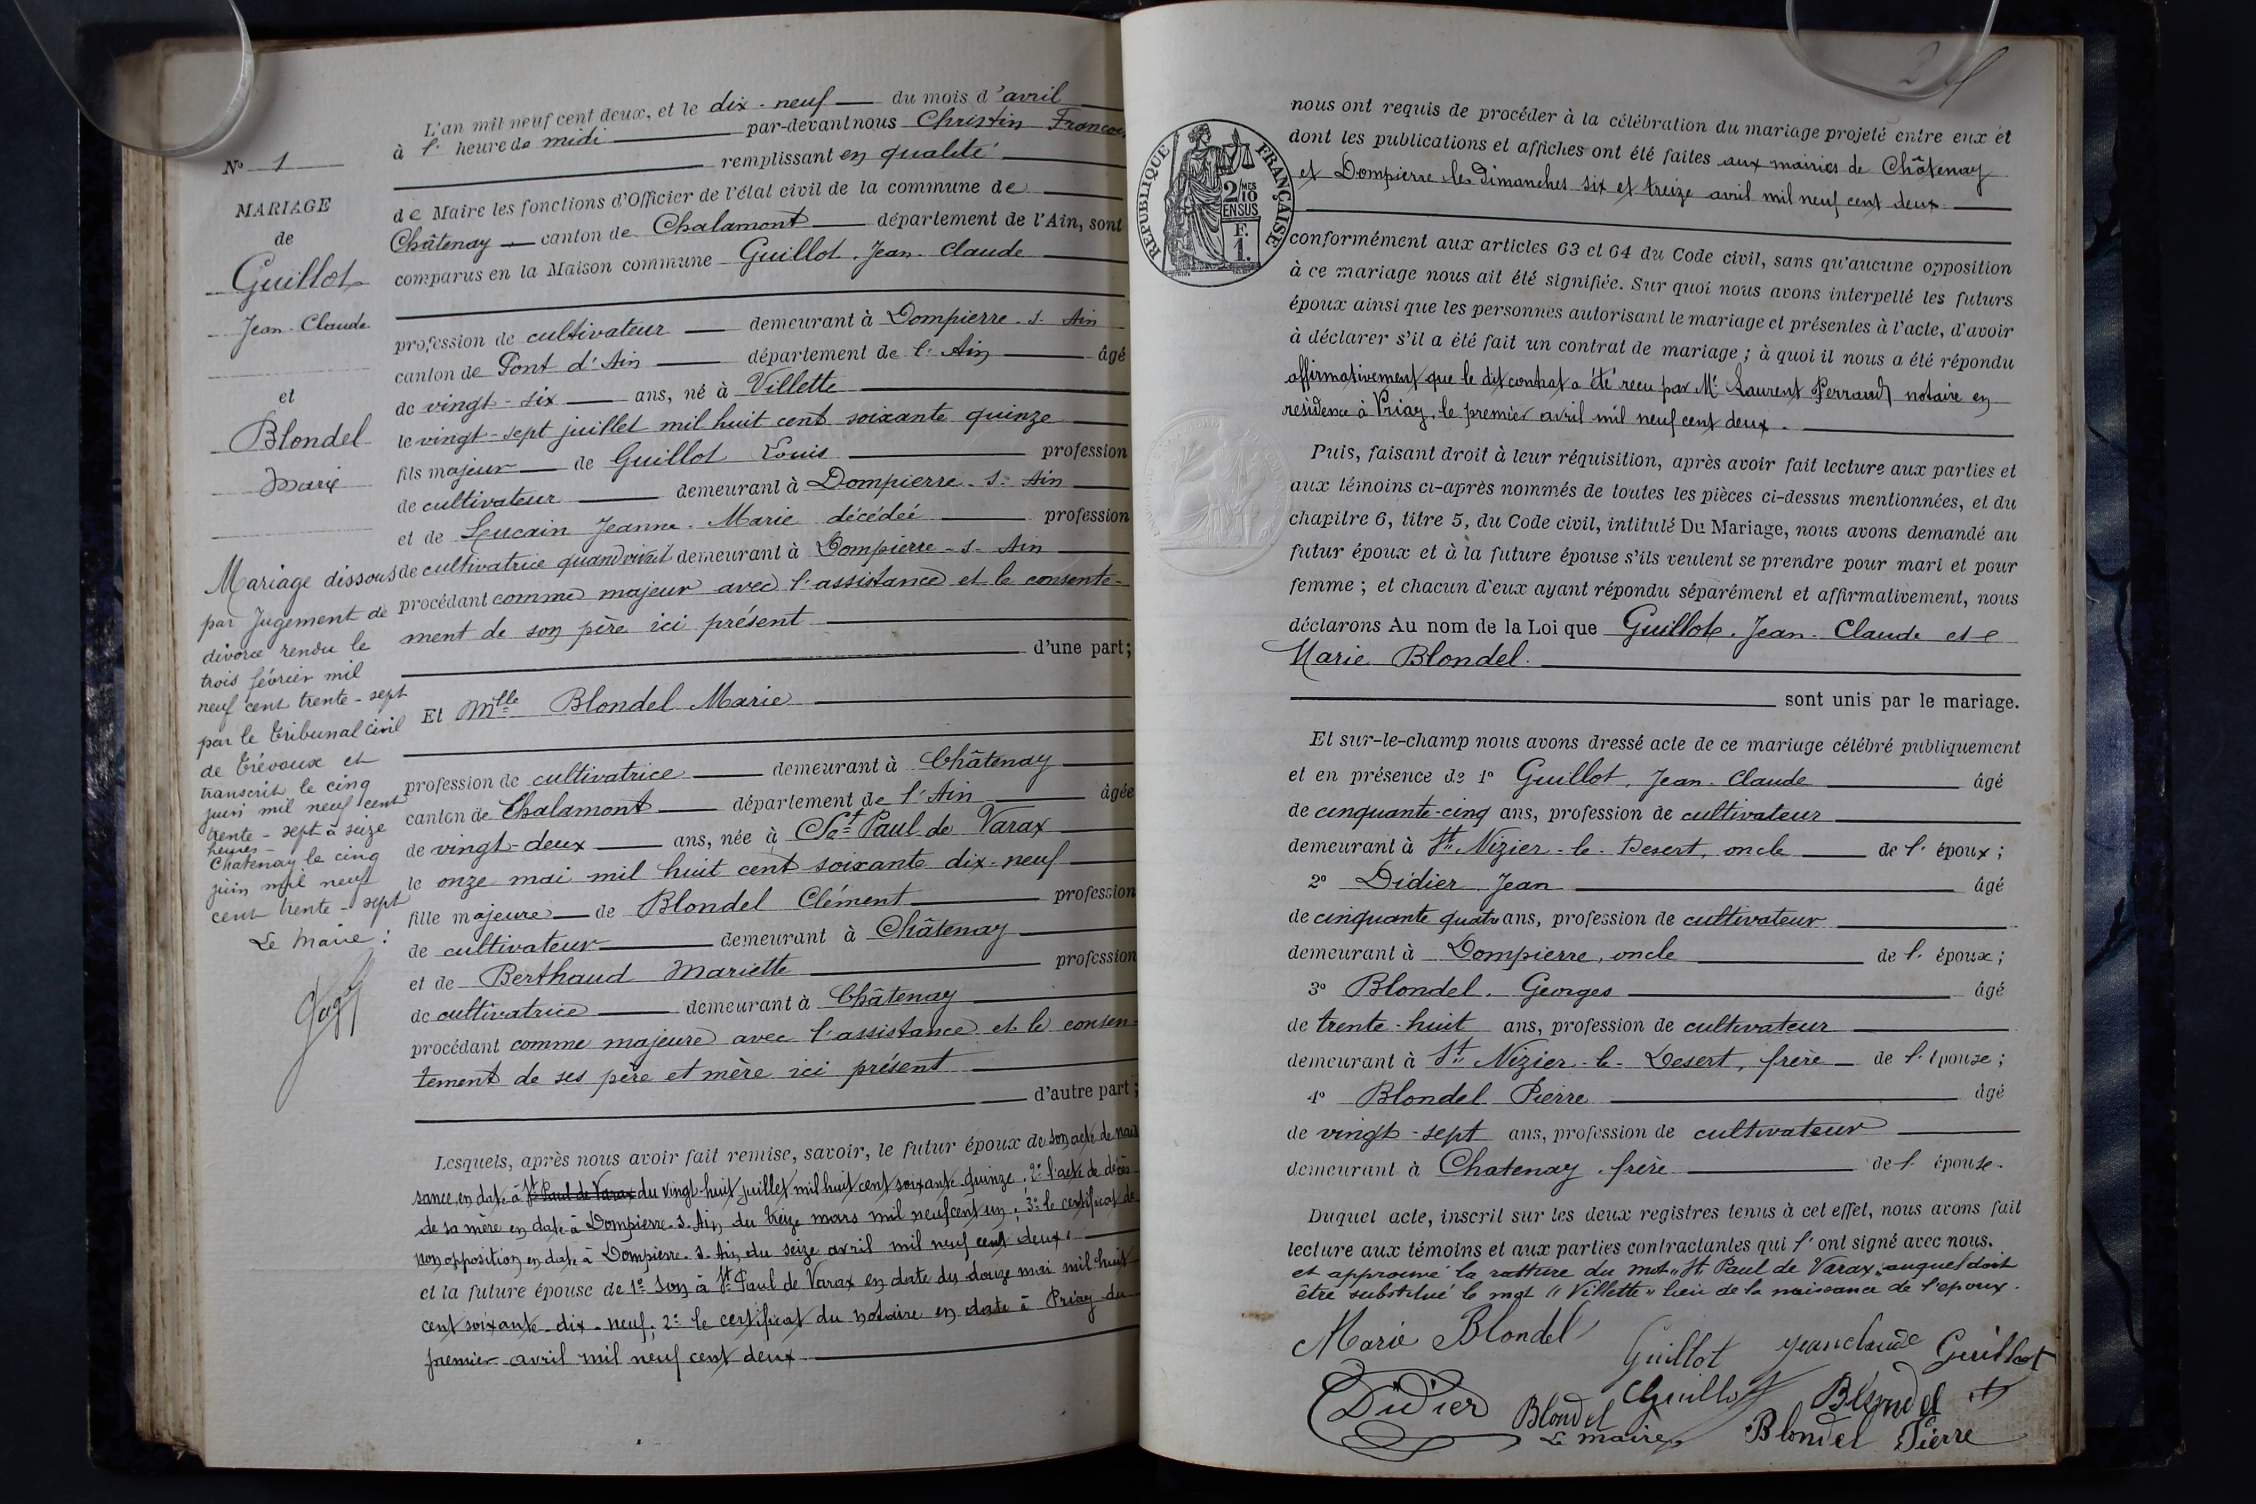 N° 1
MARIAGE
de
Guillot
Jean-Claude
et
Blondel
Marie
Mariage dissous
par Jugement de
divorce rendu le
trois février mil
neuf cent trente-sept
par le tribunal civil
de Trévoux et
transcrit le cinq
juin mil neuf cent
trente-sept à seize
heures-
Chatenay le cinq
juin mil neuf
cent trente-sept
Le Maire:
L'an mil neuf cent deux, et le dix-neuf du mois d'avril
à l' heure de midi par-devant nous Christin François
remplissant en qualité
de Maire les fonctions d'Officier de l'état civil de la commune de
Châtenay canton de Chalamont département de l'Ain, sont
comparus en la Maison commune Guillot, Jean-Claude
profession de cultivateur demeurant à Dompierre-s-Ain
canton de Pont d'Ain département de l'Ain âgé
de vingt-six ans, né à Villette
le vingt-sept juillet mil huit cent soixante quinze
fils majeur de Guillot Louis profession
de cultivateur demeurant à Dompierre-s-Ain
et de Jeanne-Marie décédée profession
de cultivatrice quand vivait demeurant à Dompierre-s-Ain
procédant comme majeur avec l'assistance et le consente-
ment de son père ici présent
d'une part;
Et Mlle Blondel Marie
profession de cultivatrice demeurant à Châtenay
canton de Chalamont département de l'Ain âgée
de vingt-deux ans, née à St Paul de Varax
le onze mai mil huit cent soixante dix-neuf
fille majeure de Blondel Clément profession
de cultivateur demeurant à Châtenay
et de Berthaud Mariette profession
de cultivatrice demeurant à Châtenay
procédant comme majeure avec l'assistance et le consen-
tement de ses père et mère ici présent
d'autre part;
Lesquels, après nous avoir fait remise, savoir, le futur époux de son acte de nais
sance, en date à St Paul de Varax du vingt-huit juillet mil huit cent soixante quinze, 2° l'acte de décès
de sa mère en date à Dompierre-s-Ain du treize mars mil neuf cent un; 3° le certificat de
non opposition en date à Dompierre-s-Ain du seize avril mil neuf cent deux.
et la future épouse de 1° son à St Paul de Varax en date du douze mai mil huit
cent soixante-dix-neuf; 2° le certificat du notaire en date à Priay du
premier avril mil neuf cent deux
RÉPUBLIQUE FRANÇAISE
2/10 MES
EN SUS
F.
1.
nous ont requis de procéder à la célébration du mariage projeté entre eux et
dont les publications et affiches ont été faites aux mairies de Châtenay
et Dompierre les dimanches six et treize avril mil neuf cent deux
conformément aux articles 63 et 64 du Code civil, sans qu'aucune opposition
à ce mariage nous ait été signifiée. Sur quoi nous avons interpellé les futurs
époux ainsi que les personnes autorisant le mariage et présentes à l'acte, d'avoir
à déclarer s'il a été fait un contrat de mariage; à quoi il nous a été répondu
affirmativement que le dit contrat a été reçu par Me Laurent Perraud notaire en
résidence à Priay, le premier avril mil neuf cent deux.
Puis, faisant droit à leur réquisition, après avoir fait lecture aux parties et
aux témoins ci-après nommés de toutes les pièces ci-dessus mentionnées, et du
chapitre 6, titre 5, du Code civil, intitulé Du Mariage, nous avons demandé au
futur époux et à la future épouse s'ils veulent se prendre pour mari et pour
femme; et chacun d'eux ayant répondu séparément et affirmativement, nous
déclarons Au nom de la Loi que Guillot, Jean-Claude et
Marie Blondel.
sont unis par le mariage.
Et sur-le-champ nous avons dressé acte de ce mariage célébré publiquement
et en présence de 1° Guillot, Jean-Claude âgé
de cinquante-cinq ans, profession de cultivateur
demeurant à St Nizier-le-Desert, oncle de l'époux;
2° Didier Jean âgé
de cinquante quatre ans, profession de cultivateur
demeurant à Dompierre, oncle de l'époux;
3° Blondel, Georges âgé
de trente-huit ans, profession de cultivateur
demeurant à St Nizier-le-Desert, frère de l'épouse;
4° Blondel Pierre âgé
de vingt-sept ans, profession de cultivateur
demeurant à Chatenay, frère de l'épouse.
Duquel acte, inscrit sur les deux registres tenus à cet effet, nous avons fait
lecture aux témoins et aux parties contractantes qui l'ont signé avec nous.
et approuvé la rature du mot "St Paul de Varax" auquel doit
être substitué le mot "Villette" lieu de la naissance de l'époux.
Marie Blondel Guillot jean claude Guillot
Didier Blondel Guillot Blondel
Le maire Blondel Pierre